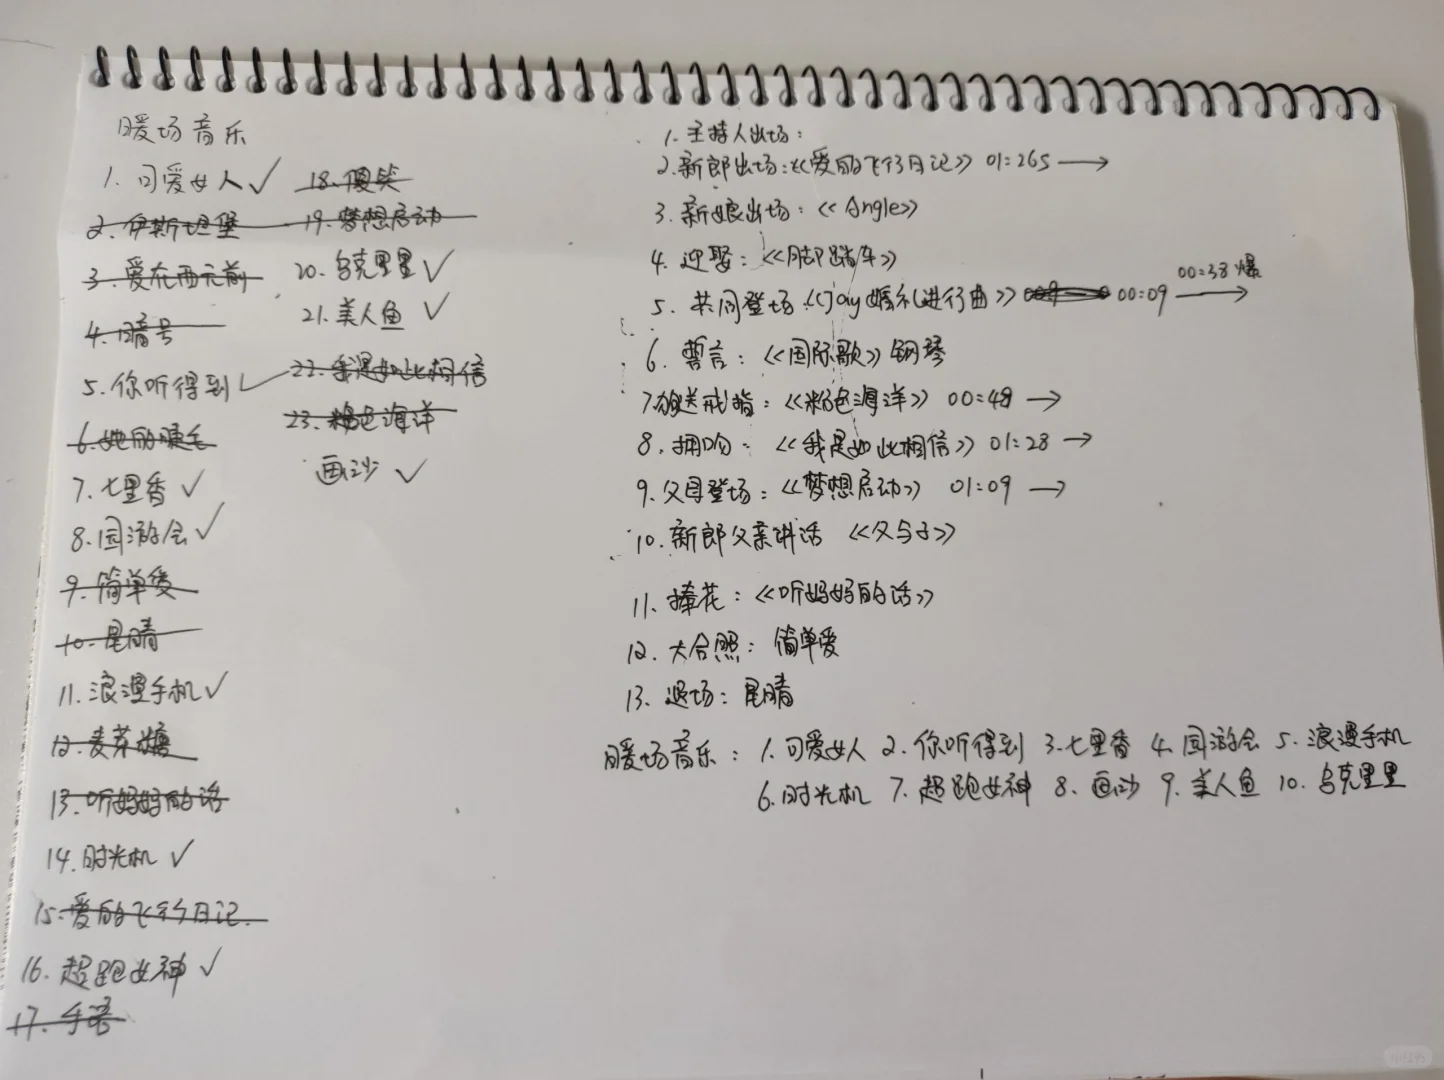 暖场音乐
1. 可爱女人 ✓
2. 伊斯坦堡
3. 爱在西元前
4. 暗号
5. 你听得到 ✓
6. 她的睫毛
7. 七里香 ✓
8. 园游会 ✓
9. 简单爱
10. 屋晴
11. 浪漫手机 ✓
12. 麦芽糖
13. 听妈妈的话
14. 时光机 ✓
15. 爱的飞行日记
16. 超跑女神 ✓
17. 手语
18. 傻笑
19. 梦想启动
20. 乌克里里 ✓
21. 美人鱼 ✓
22. 我是如此相信
23. 粉色海洋
画沙 ✓
1. 主持人出场:
2. 新郎出场:《爱的飞行日记》 01:26s →
3. 新娘出场:《Angle》
4. 迎娶:《脚踏车》
5. 共同登场《Jay婚礼进行曲》 00:09 → 00:38 爆
6. 誓言:《国际歌》钢琴
7. 放送戒指:《粉色海洋》 00:48 →
8. 拥吻:《我是如此相信》 01:28 →
9. 父母登场:《梦想启动》 01:09 →
10. 新郎父亲讲话 《父与子》
11. 捧花:《听妈妈的话》
12. 大合照: 简单爱
13. 退场: 屋晴
暖场音乐: 1. 可爱女人 2. 你听得到 3. 七里香 4. 园游会 5. 浪漫手机
6. 时光机 7. 超跑女神 8. 画沙 9. 美人鱼 10. 乌克里里
小红书